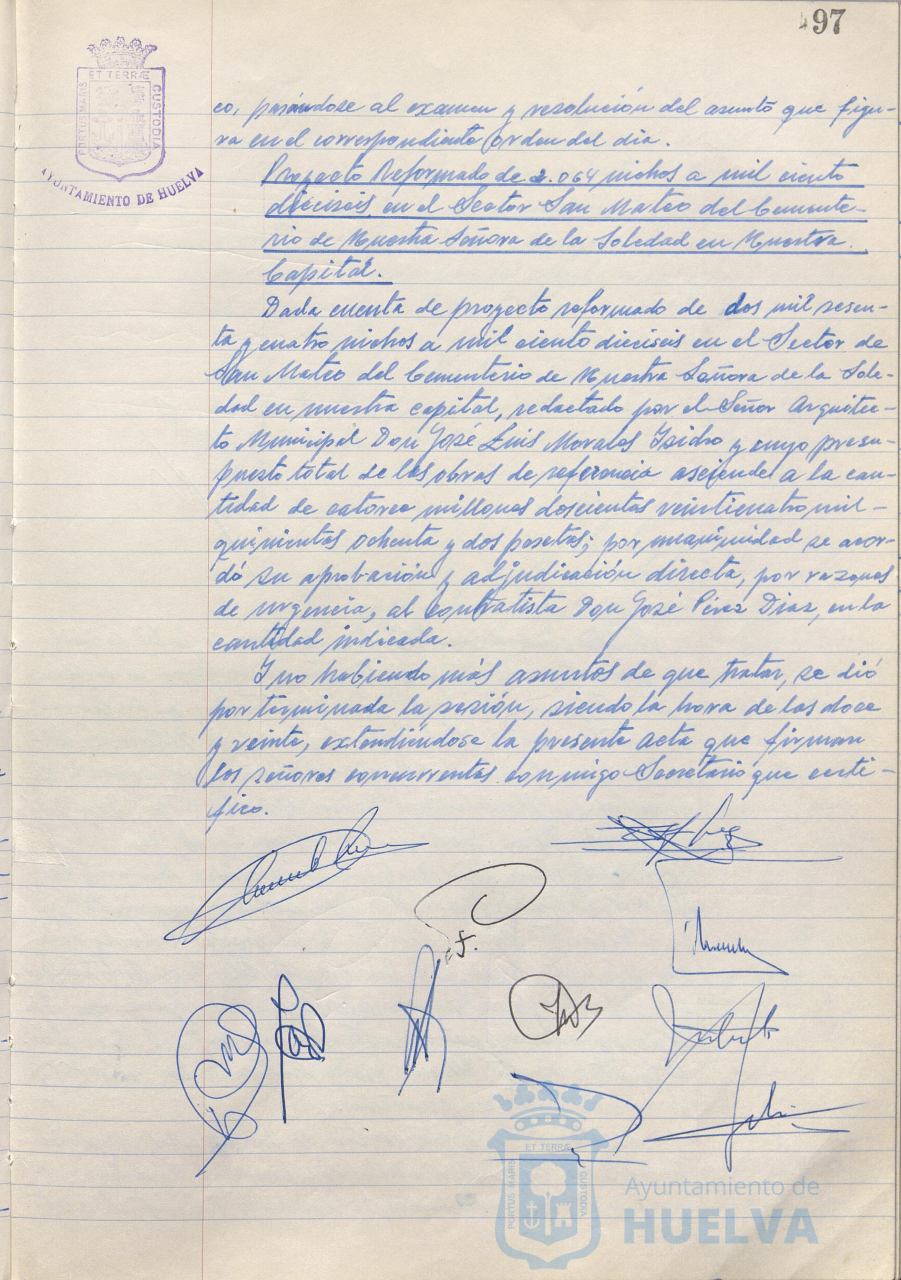 97
ET TERRÆ
PORTUS MARIS
CUSTODIA
AYUNTAMIENTO DE HUELVA
co, pasándose al examen y resolución del asunto que figu-
ra en el correspondiente orden del dia.
Proyecto Reformado de 2.064 nichos a mil ciento
dieciseis en el Sector San Mateo del Cemente-
rio de Nuestra Señora de la Soledad en Nuestra
Capital.
Dada cuenta de proyecto reformado de dos mil sesen-
ta y cuatro nichos a mil ciento dieciseis en el Sector de
San Mateo del Cementerio de Nuestra Señora de la Sole-
dad en nuestra capital, redactado por el Señor Arquitec-
to Municipal Don José Luis Morales Isidro y cuyo presu-
puesto total de las obras de referencia asciende a la can-
tidad de catorce millones doscientas veinticuatro mil
quinientas ochenta y dos pesetas; por unanimidad se acor-
dó su aprobación y adjudicación directa, por razones
de urgencia, al contratista Don José Pérez Diaz, en la
cantidad indicada.
Y no habiendo más asuntos de que tratar, se dió
por terminada la sesión, siendo la hora de las doce
y veinte, extendiéndose la presente acta que firman
los señores concurrentes conmigo Secretario que certi-
fico.
ET TERRÆ
PORTUS MARIS
CUSTODIA
Ayuntamiento de
HUELVA